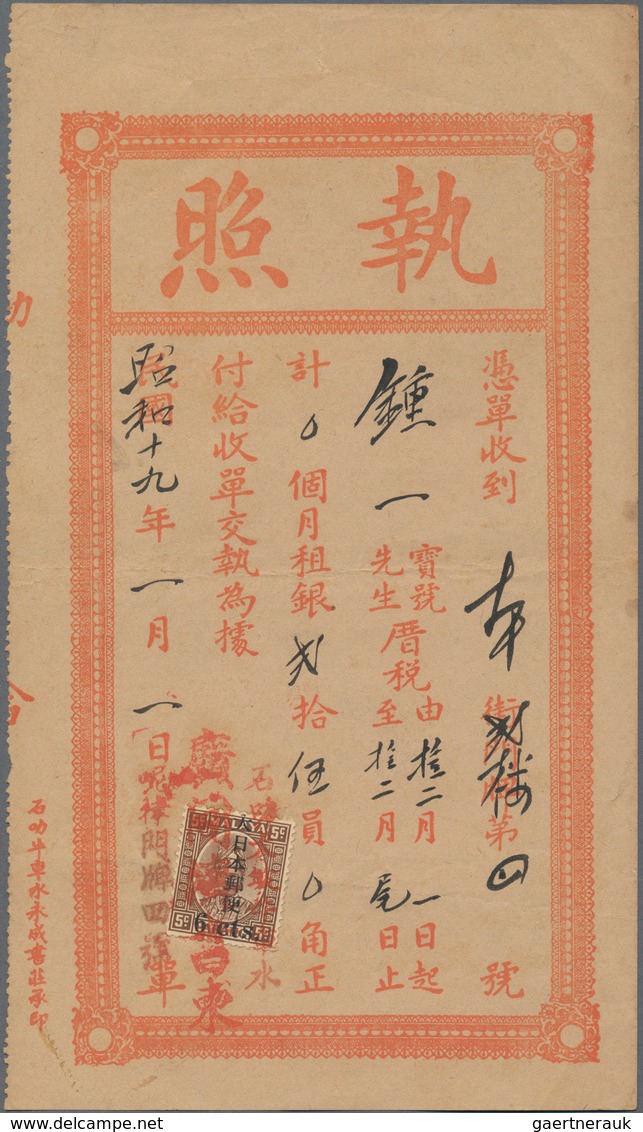 執照
憑單收到 街 第四號
鍾一 寶號先生厝稅由拾二月一日起至拾二月尾日止
計0個月租銀弍拾伍員0角正
付給收單交執為據
民國昭和十九年一月一日 單
石叻 水
廣
門牌四號
5¢ MALAYA 5¢
大日本郵便
6 cts.
5¢ 5¢
石叻牛車水永成書莊承印
delcampe.net
gaertnerauk